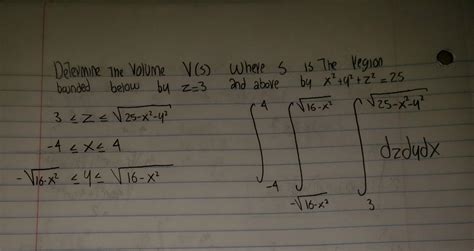 Determine The Volume V(S) Where S is The Region
bounded below by z=3 and above by x²+y²+z²=25
3 ≤ z ≤ √(25-x²-y²)
-4 ≤ x ≤ 4
-√(16-x²) ≤ y ≤ √(16-x²)
∫_{-4}^{4} ∫_{-√(16-x²)}^{√(16-x²)} ∫_{3}^{√(25-x²-y²)} dzdydx